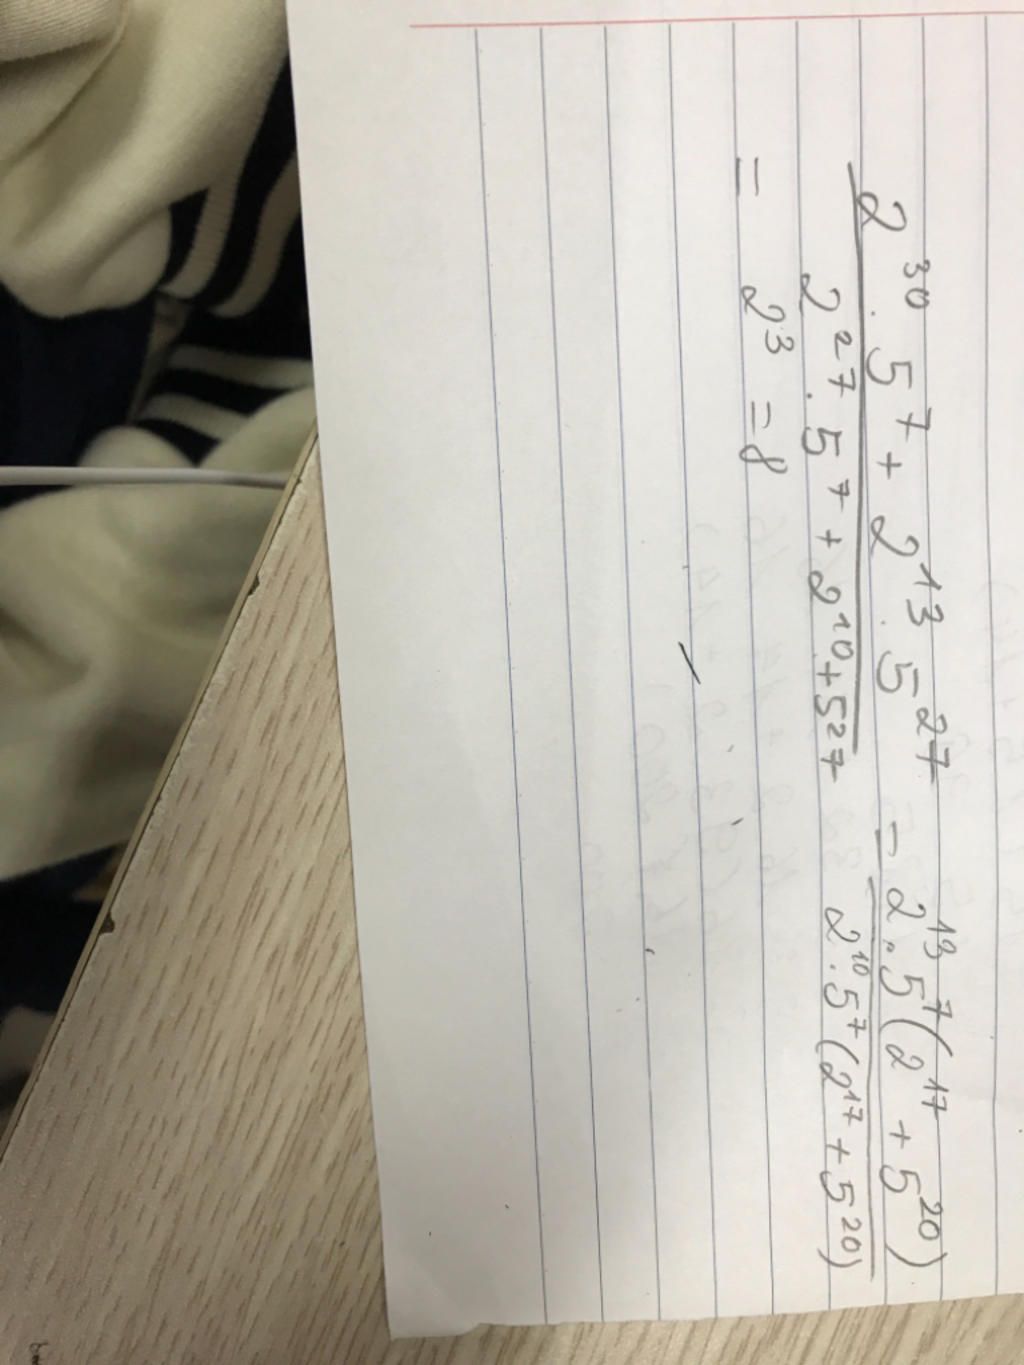 2^30 . 5^7 + 2^13 . 5^27 = 2^13 . 5^7 (2^17 + 5^20)
2^27 . 5^7 + 2^10 + 5^27 2^10 . 5^7 (2^17 + 5^20)
= 2^3 = 8